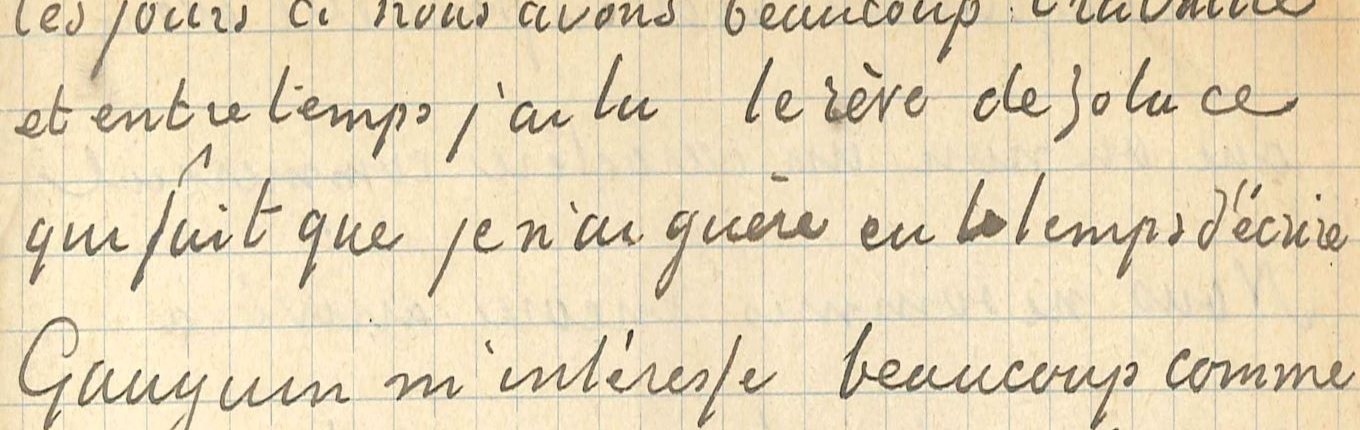 les jours ci nous avons beaucoup travaillé
et entretemps j'ai lu le rêve de Zola ce
qui fait que je n'ai guère eu le temps d'écrire
Gauguin m'intéresse beaucoup comme